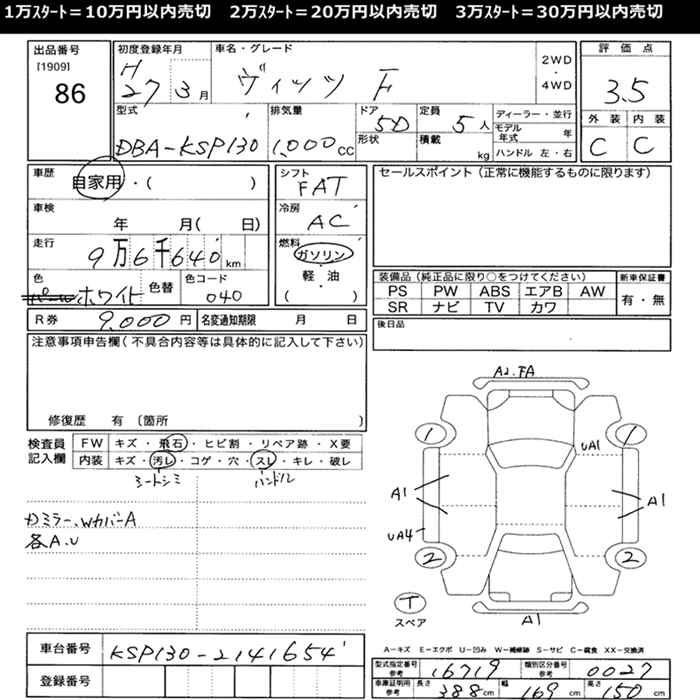 1万スタート＝10万円以内売切　2万スタート＝20万円以内売切　3万スタート＝30万円以内売切
出品番号
[1909]
86
初度登録年月
H27 3月
車名・グレード
ヴィッツ F
2WD
・
4WD
評価点
3.5
外装 内装
C C
型式
DBA-KSP130
排気量
1,000cc
ドア
5D
形状
定員
5人
積載
kg
ディーラー・並行
モデル年式 年
ハンドル 左・右
車歴
自家用・( )
車検
年 月( 日)
走行
9万6千640km
色
ホワイト
色替
色コード
040
シフト
FAT
冷房
AC
燃料
ガソリン
・
軽・油
( )
セールスポイント（正常に機能するものに限ります）
装備品（純正品に限り○をつけてください）
PS PW ABS エアB AW
SR ナビ TV カワ
新車保証書
有・無
R券 9,000円
名変通知期限 月 日
後日品
注意事項申告欄（不具合内容等は具体的に記入して下さい）
修復歴 有〔箇所
検査員
記入欄
FW キズ・飛石・ヒビ割・リペア跡・X要
内装 キズ・汚レ・コゲ・穴・スレ・キレ・破レ
シートシミ ハンドル
Dミラー、WカバーA
各A.U
A2.FA
1
1
UA1
A1
A1
UA4
2
2
T
スペア
A1
車台番号
KSP130-2141654
登録番号
A−キズ E−エクボ U−凹み W−補修跡 S−サビ C−腐食 XX−交換済
型式指定番号
参考
16719
類別区分番号
参考
0027
車庫証明用
参考
長さ 388cm
幅 169cm
高さ 150cm